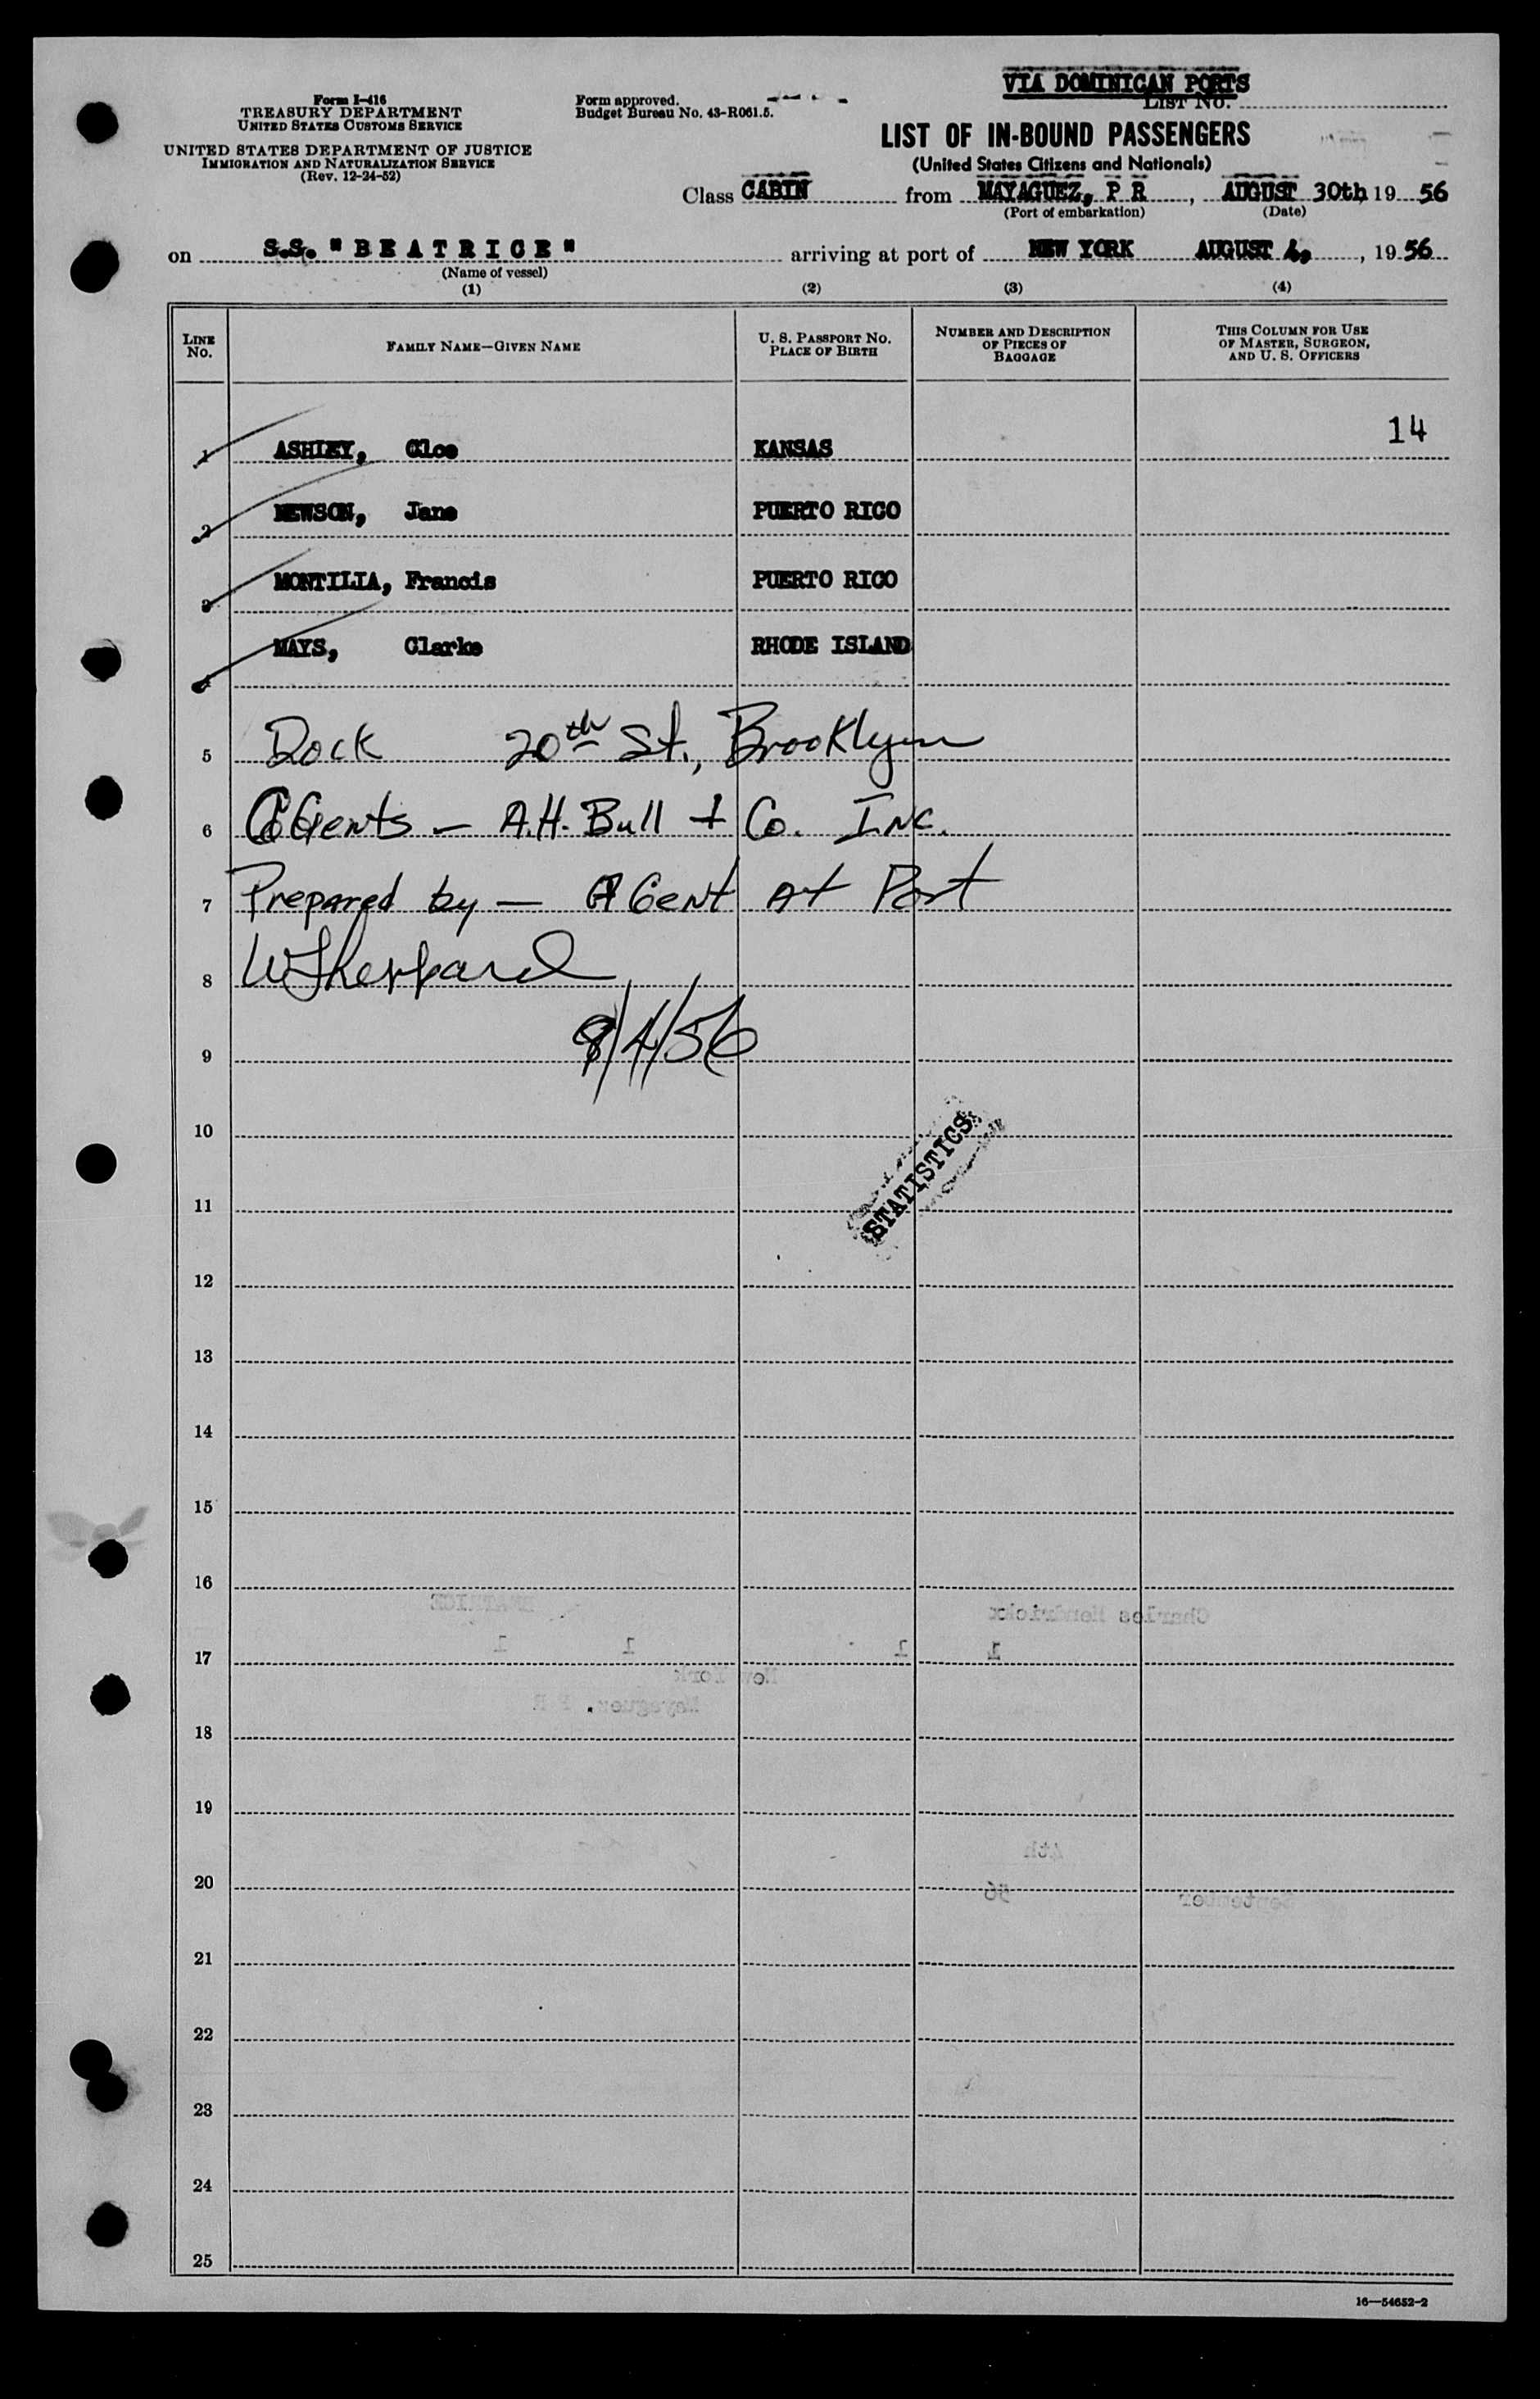 VIA DOMINICAN PORTS
LIST NO.
Form I-416
TREASURY DEPARTMENT
UNITED STATES CUSTOMS SERVICE
UNITED STATES DEPARTMENT OF JUSTICE
IMMIGRATION AND NATURALIZATION SERVICE
(Rev. 12-24-52)
Form approved.
Budget Bureau No. 43-R061.5.
LIST OF IN-BOUND PASSENGERS
(United States Citizens and Nationals)
Class CABIN from MAYAGUEZ, P R, AUGUST 30th, 19 56
(Port of embarkation) (Date)
on S.S. "BEATRICE" arriving at port of NEW YORK AUGUST 4, 19 56
(Name of vessel)
(1) (2) (3) (4)
LINE NO.
FAMILY NAME—GIVEN NAME
U. S. PASSPORT NO.
PLACE OF BIRTH
NUMBER AND DESCRIPTION
OF PIECES OF
BAGGAGE
THIS COLUMN FOR USE
OF MASTER, SURGEON,
AND U. S. OFFICERS
14
1 ASHLEY, Cloe KANSAS
2 NEWSON, Jane PUERTO RICO
3 MONTILIA, Francis PUERTO RICO
4 MAYS, Clarke RHODE ISLAND
5 Dock 20th St., Brooklyn
6 AGents – A.H. Bull + Co. Inc.
7 Prepared by – AGent At Port
8 WSheppard
9 8/4/56
10
STATISTICS
11
12
13
14
15
16
BEATRICE Charles Hendrickx
17 1 1 1 1
New York
Mayaguez, P R
18
19
4th
20 56 September
21
22
23
24
25
16—54652-2